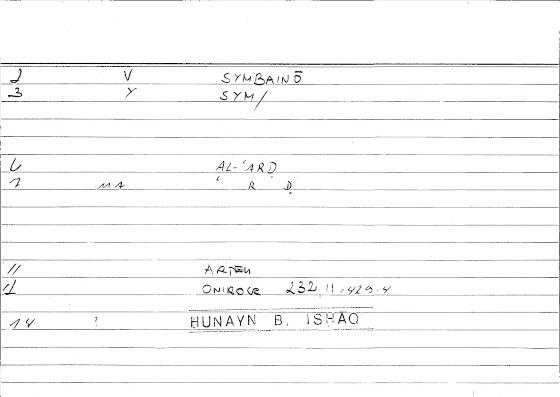 2 V SYMBAINŌ
3 Y SYM/
6 AL-ʿARḌ
7 MA ʿ R Ḍ
11 ARTEM
12 ONIROCR 232,11=429.4
14 ? HUNAYN B. ISHAQ